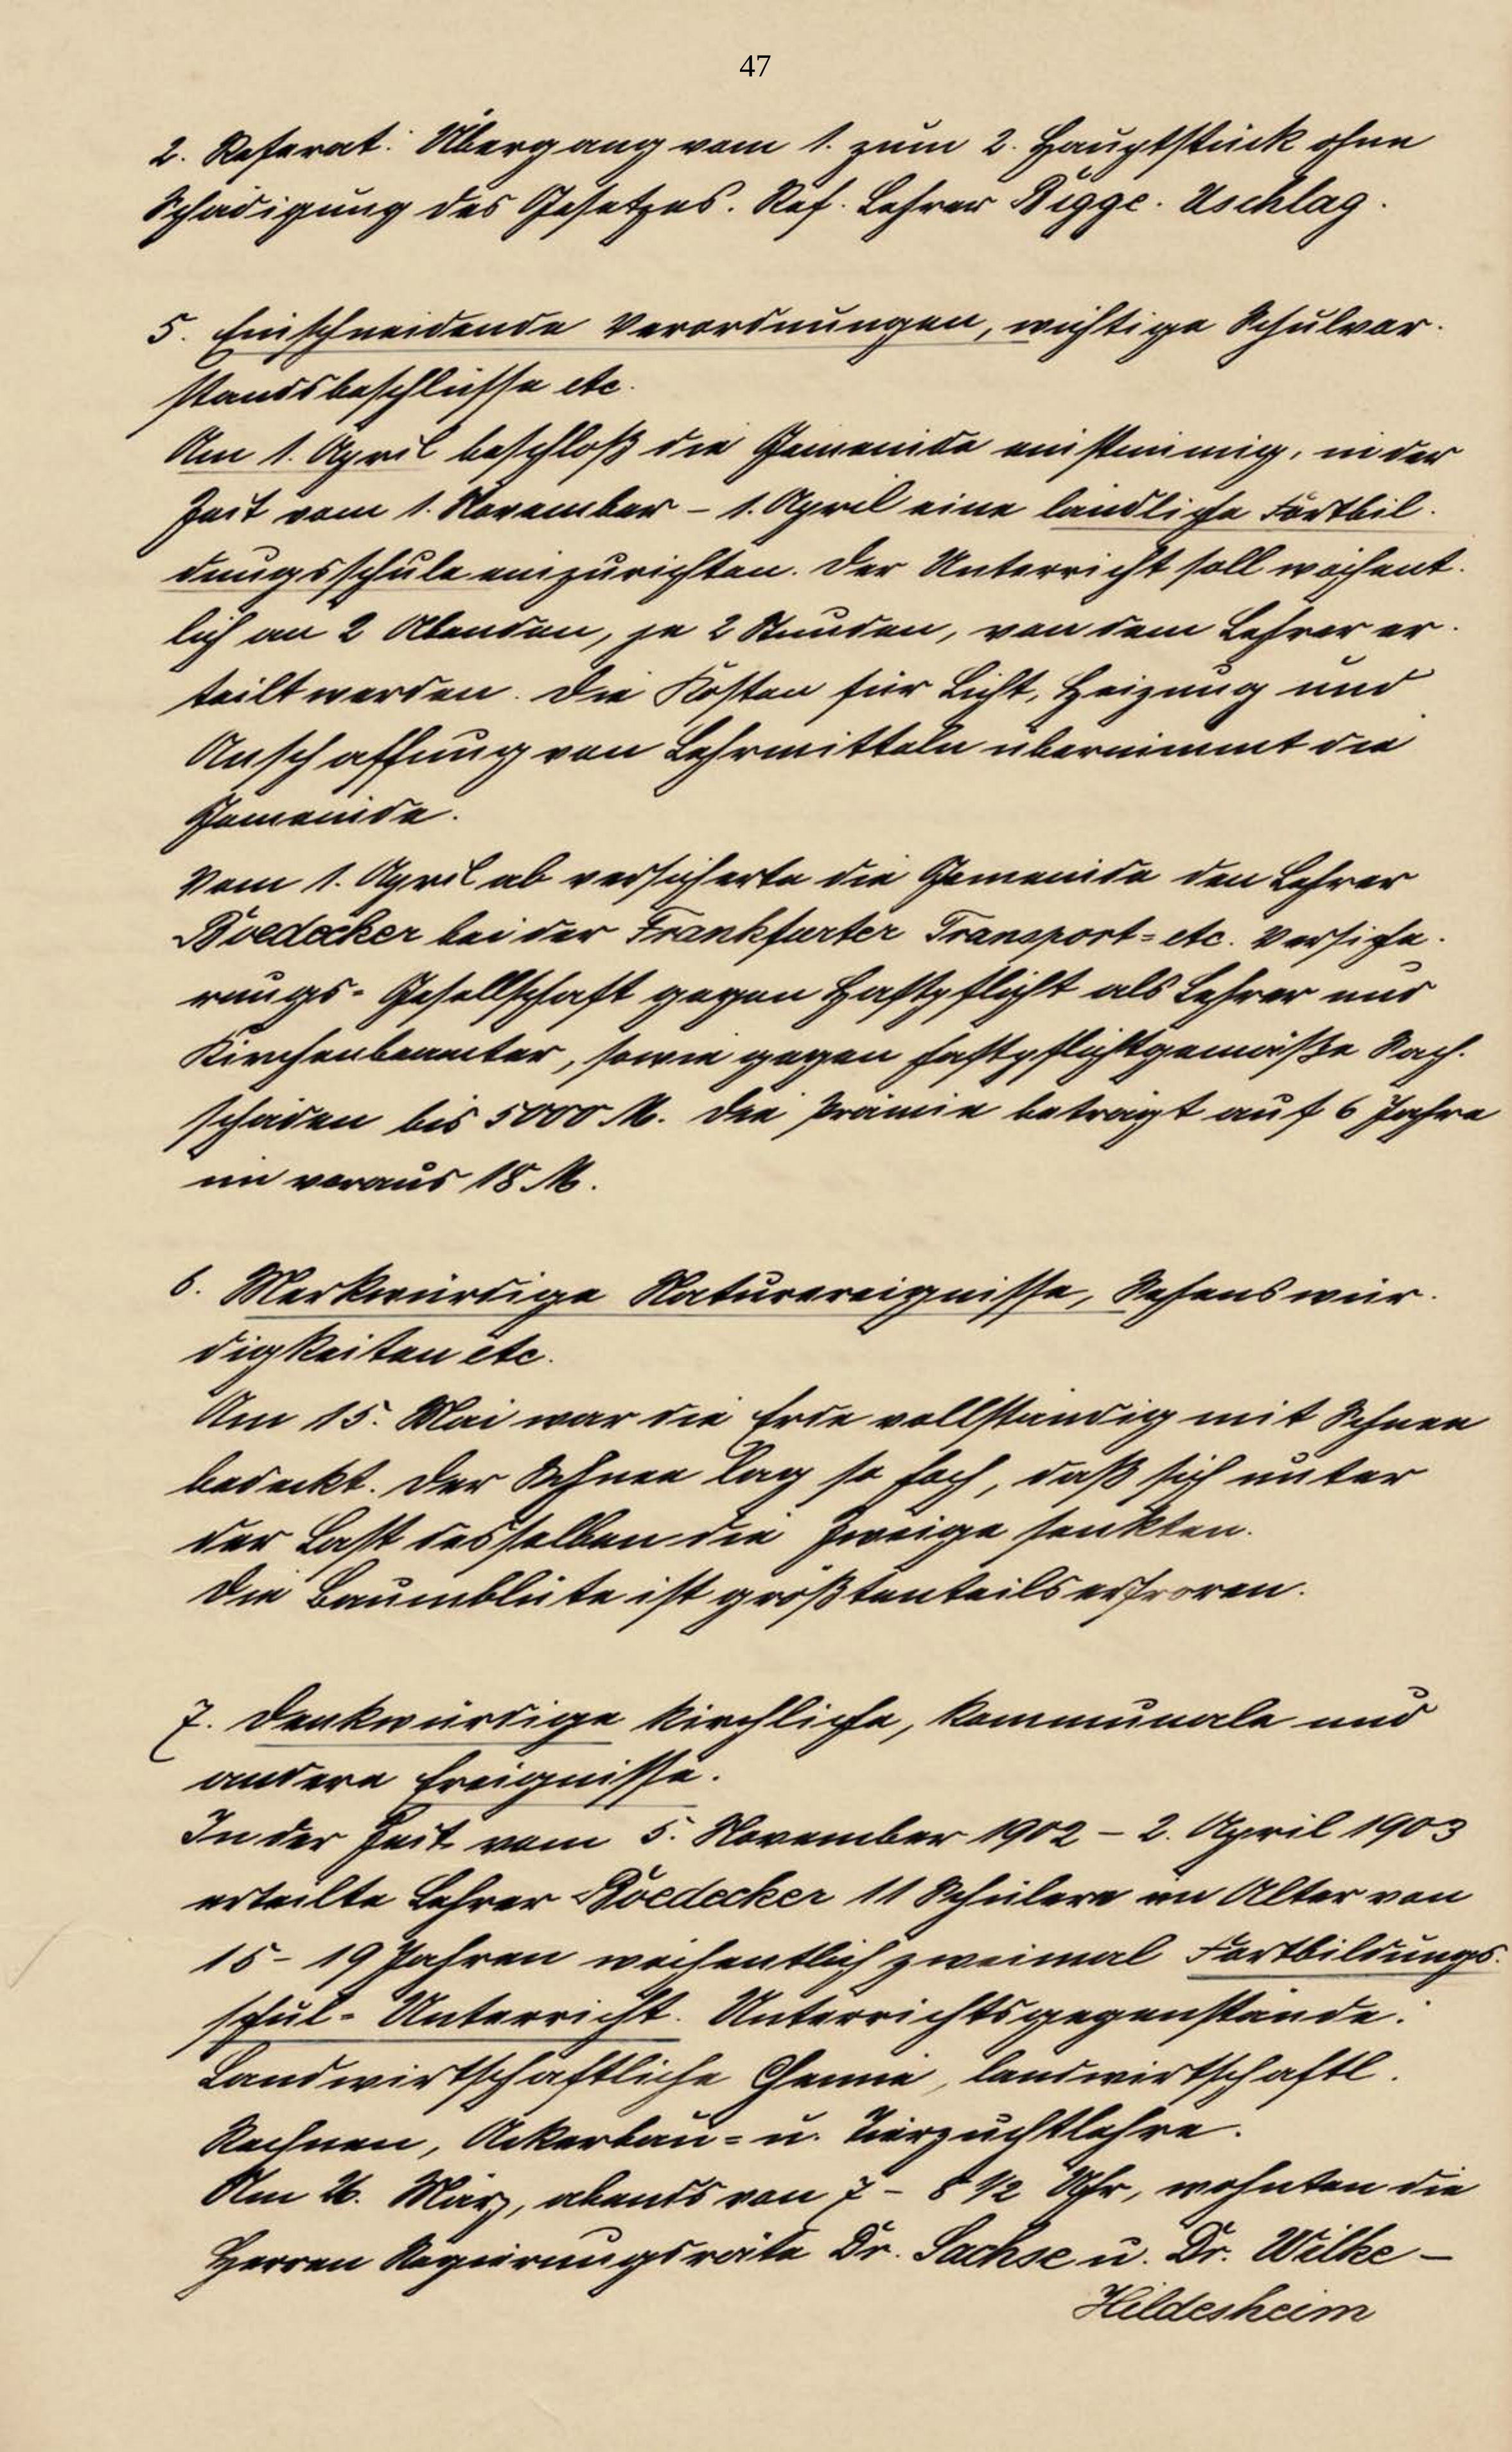 47
2. Referat: Übergang vom 1. zum 2. Hauptstück ohne
Schädigung des Gesetzes. Ref. Lehrer Bigge. Uschlag.
5. Einschneidende Verordnungen, wichtige Schulvor-
standsbeschlüsse etc.
Am 1. April beschloß die Gemeinde einstimmig, in der
Zeit vom 1. November – 1. April eine ländliche Fortbil-
dungsschule einzurichten. Der Unterricht soll wöchent-
lich an 2 Abenden, je 2 Stunden, von dem Lehrer er-
teilt werden. Die Kosten für Licht, Heizung und
Anschaffung von Lehrmitteln übernimmt die
Gemeinde.
Vom 1. April ab versicherte die Gemeinde den Lehrer
Boedecker bei der Frankfurter Transport= etc. Versiche-
rungs-Gesellschaft gegen Haftpflicht als Lehrer und
Kirchenbeamter, sowie gegen haftpflichtgemäße Sach-
schäden bis 5000 M. Die Prämie beträgt auf 6 Jahre
im voraus 18 M.
6. Merkwürdige Naturereignisse, Sehenswür-
digkeiten etc.
Am 15. Mai war die Erde vollständig mit Schnee
bedeckt. Der Schnee lag so hoch, daß sich unter
der Last desselben die Zweige senkten.
Die Baumblüte ist größtenteils erfroren.
7. Denkwürdige kirchliche, kommunale und
andere Ereignisse.
In der Zeit vom 5. November 1902 – 2. April 1903
erteilte Lehrer Boedecker 11 Schülern im Alter von
15 – 19 Jahren wöchentlich zweimal Fortbildungs-
schul-Unterricht. Unterrichtsgegenstände:
Landwirtschaftliche Chemie, landwirtschaftl.
Rechnen, Ackerbau= u. Tierzuchtlehre.
Am 26. März, abends von 7 – 8 1/2 Uhr, wohnten die
Herren Regierungsräte Dr. Sachse u. Dr. Wilke –
Hildesheim